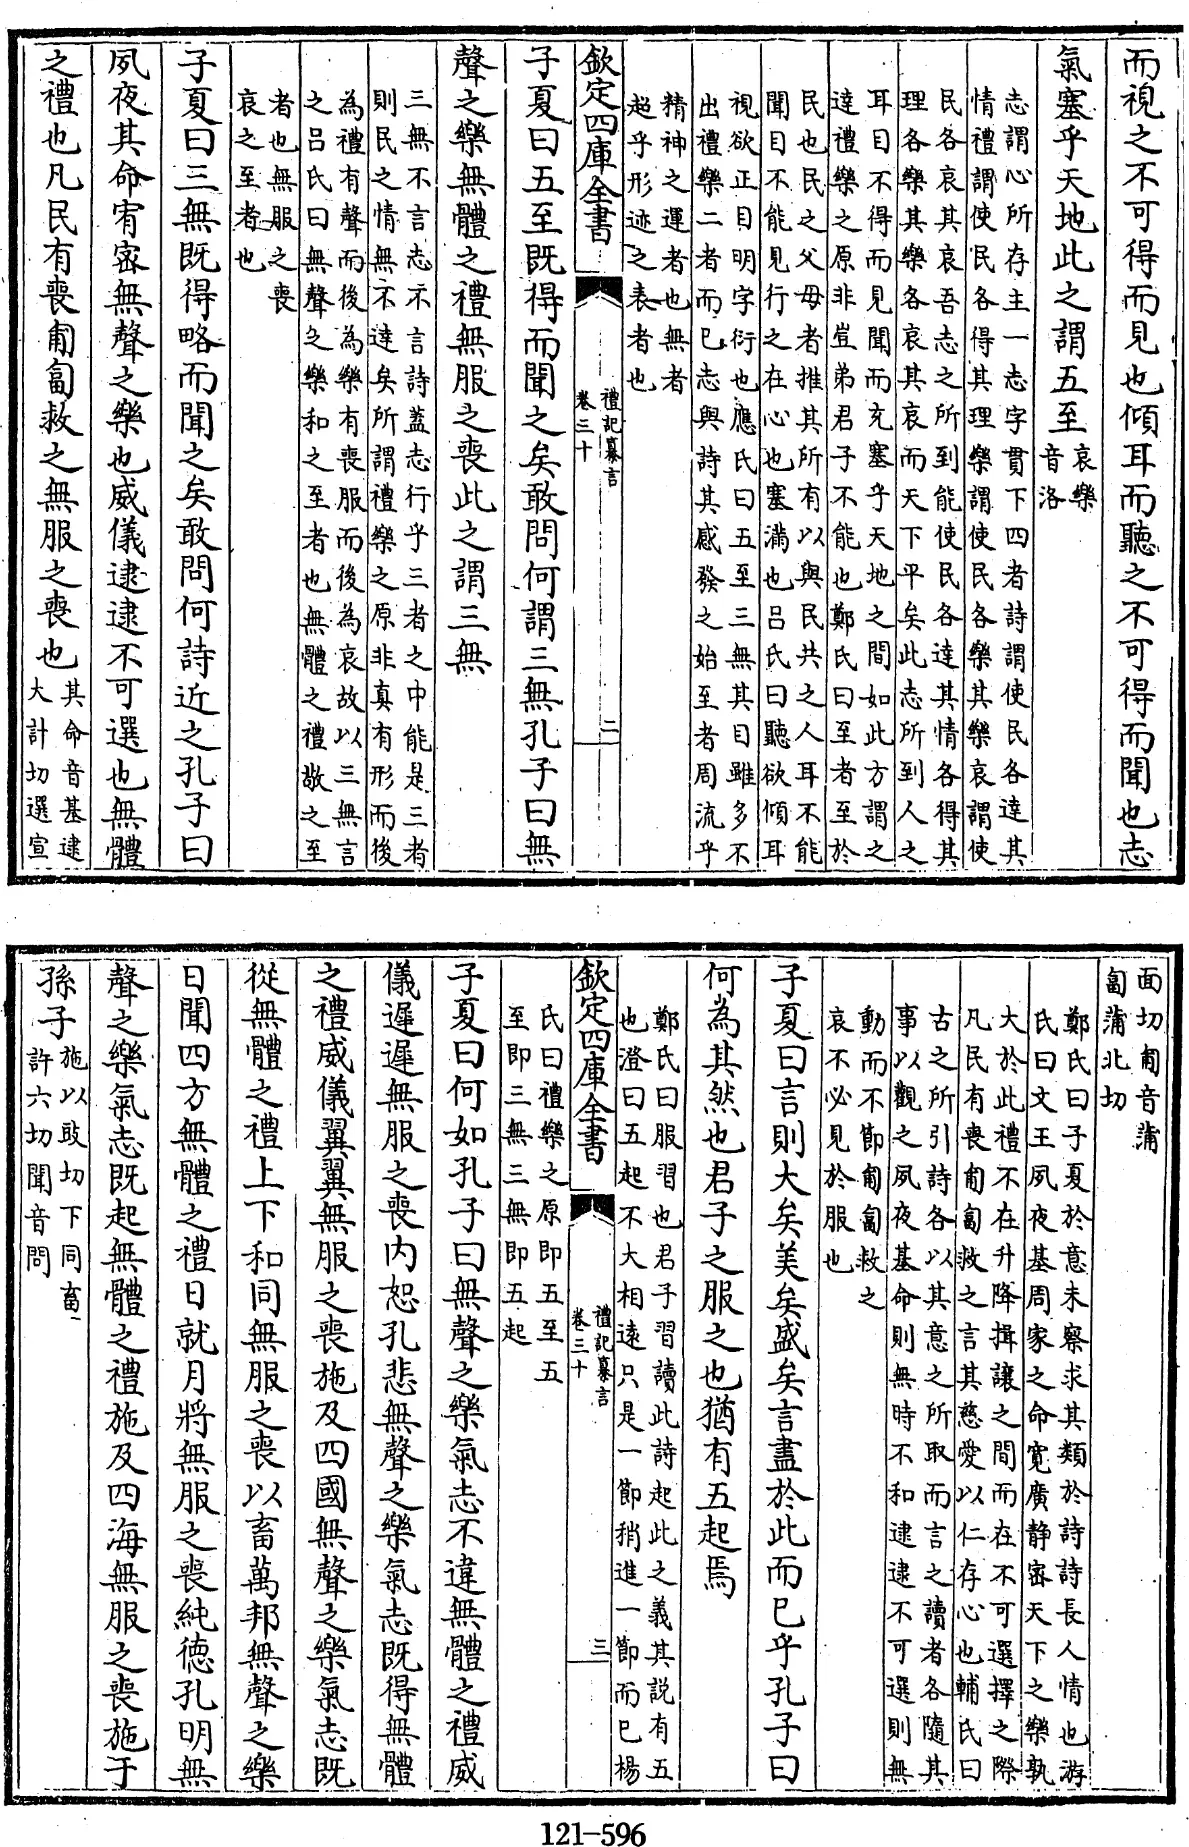 而視之不可得而見也傾耳而聽之不可得而聞也志
氣塞乎天地此之謂五至
哀樂
音洛
志謂心所存主一志字貫下四者詩謂使民各達其
情禮謂使民各得其理樂謂使民各樂其樂哀謂使
民各哀其哀吾志之所到能使民各達其情各得其
理各樂其樂各哀其哀而天下平矣此志所到人之
耳目不得而見聞而充塞乎天地之間如此方謂之
達禮樂之原非豈弟君子不能也鄭氏曰至者至於
民也民之父母者推其所有以與民共之人耳不能
聞目不能見行之在心也塞滿也呂氏曰聽欲傾耳
視欲正目明字衍也應氏曰五至三無其目雖多不
出禮樂二者而已志與詩其感發之始至者周流乎
精神之運者也無者
超乎形迹之表者也
欽定四庫全書
禮記纂言
卷三十
二
子夏曰五至既得而聞之矣敢問何謂三無孔子曰無
聲之樂無體之禮無服之喪此之謂三無
三無不言志不言詩蓋志行乎三者之中能是三者
則民之情無不達矣所謂禮樂之原非真有形而後
為禮有聲而後為樂有喪服而後為哀故以三無言
之呂氏曰無聲之樂和之至者也無體之禮敬之至
者也無服之喪
哀之至者也
子夏曰三無既得略而聞之矣敢問何詩近之孔子曰
夙夜其命宥宻無聲之樂也威儀逮逮不可選也無體
之禮也凡民有喪匍匐救之無服之喪也
其命音基逮
大計切選宣
面切匍音蒲
匐蒲北切
鄭氏曰子夏於意未察求其類於詩詩長人情也游
氏曰文王夙夜基周家之命寛廣静宻天下之樂孰
大於此禮不在升降揖讓之間而在不可選擇之際
凡民有喪匍匐救之言其慈愛以仁存心也輔氏曰
古之所引詩各以其意之所取而言之讀者各隨其
事以觀之夙夜基命則無時不和逮逮不可選則無
動而不節匍匐救之
哀不必見於服也
子夏曰言則大矣美矣盛矣言盡於此而已乎孔子曰
何為其然也君子之服之也猶有五起焉
鄭氏曰服習也君子習讀此詩起此之義其説有五
也澄曰五起不大相遠只是一節稍進一節而已楊
氏曰禮樂之原即五至五
至即三無三無即五起
欽定四庫全書
禮記纂言
卷三十
三
子夏曰何如孔子曰無聲之樂氣志不違無體之禮威
儀遲遲無服之喪内恕孔悲無聲之樂氣志既得無體
之禮威儀翼翼無服之喪施及四國無聲之樂氣志既
從無體之禮上下和同無服之喪以畜萬邦無聲之樂
日聞四方無體之禮日就月將無服之喪純德孔明無
聲之樂氣志既起無體之禮施及四海無服之喪施于
孫子
施以豉切下同畜
許六切聞音問
121-596